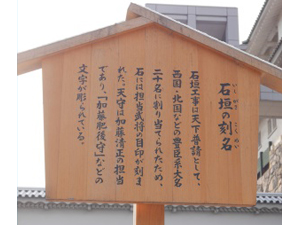 石垣の刻名
石垣工事は天下普請として、
西国・北国などの豊臣系大名
二十名に割り当てられたため、
石には担当武将の目印が刻ま
れた。天守は加藤清正の担当
であり、「加藤肥後守」などの
文字が彫られている。